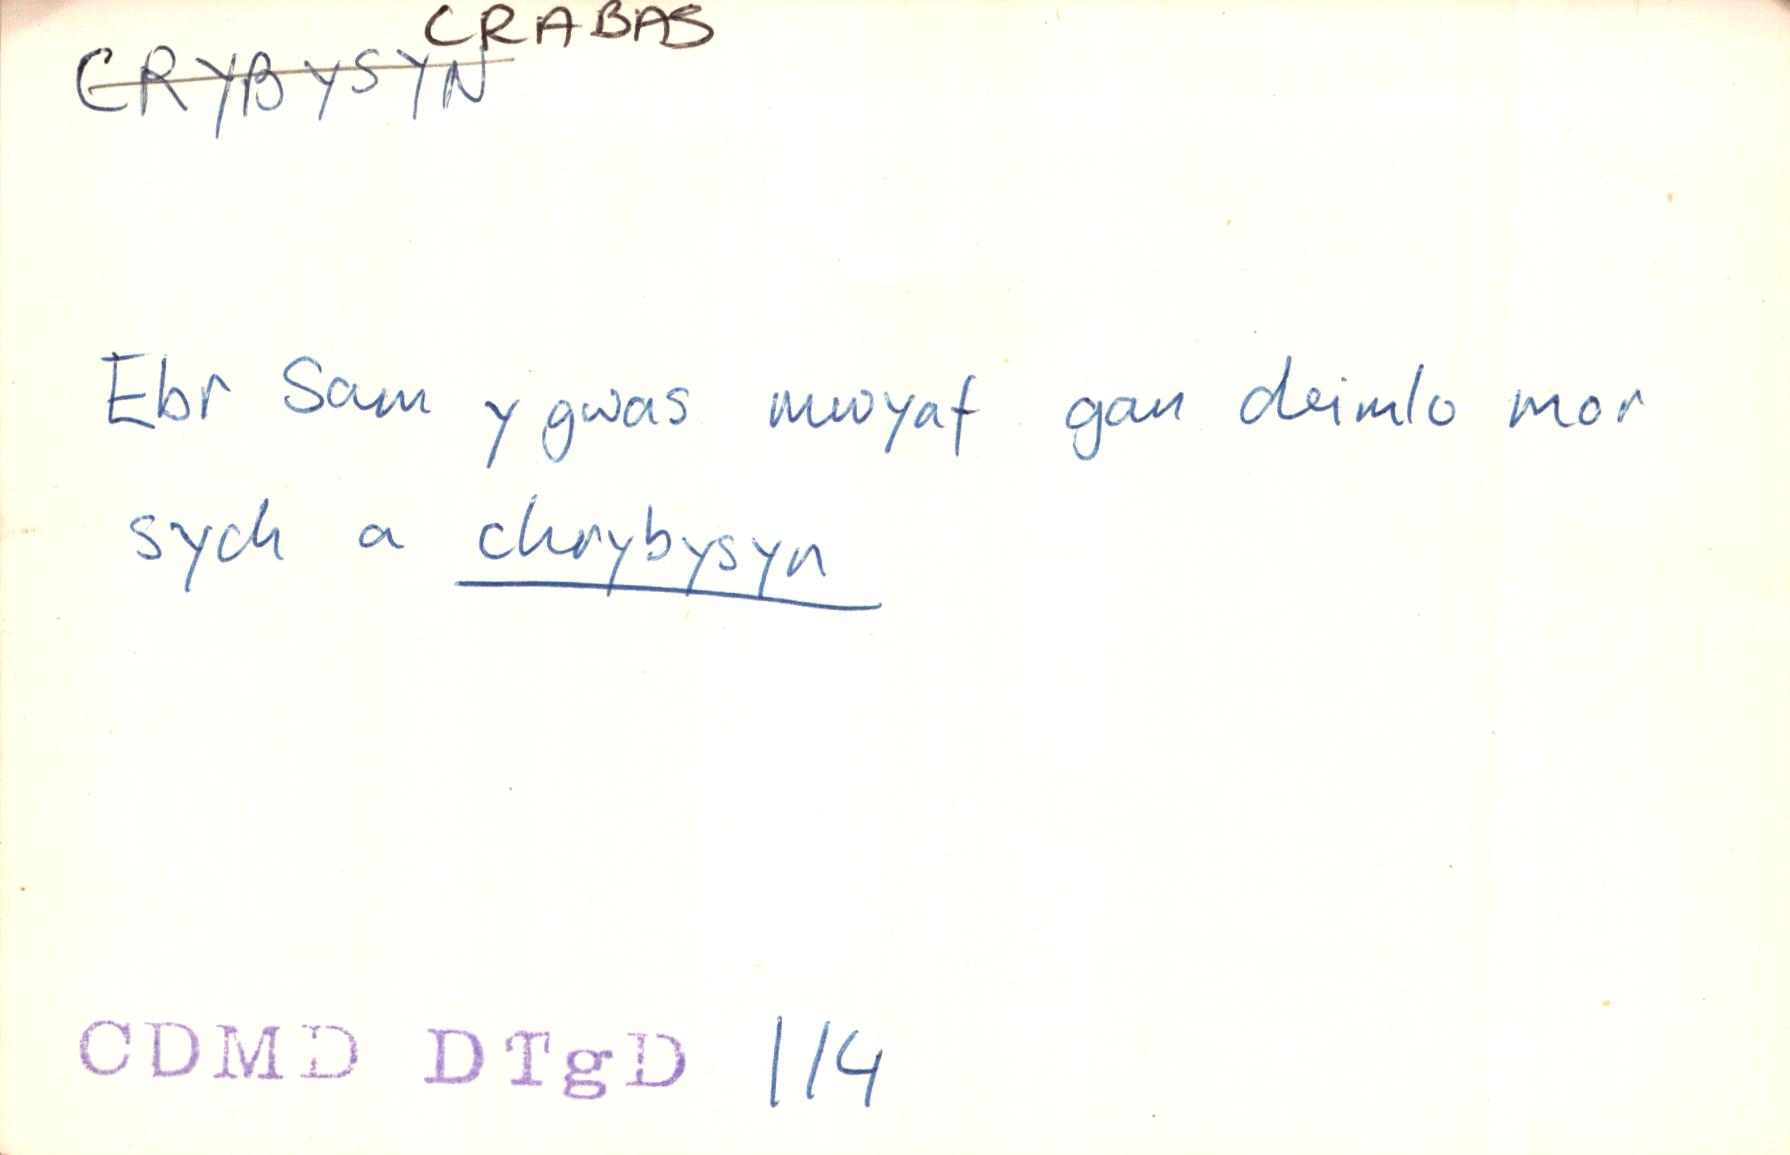 CRABAS
CRYBYSYN
Ebr Sam y gwas mwyaf gan deimlo mor
sych a chrybysyn
CDMD DTgD 114